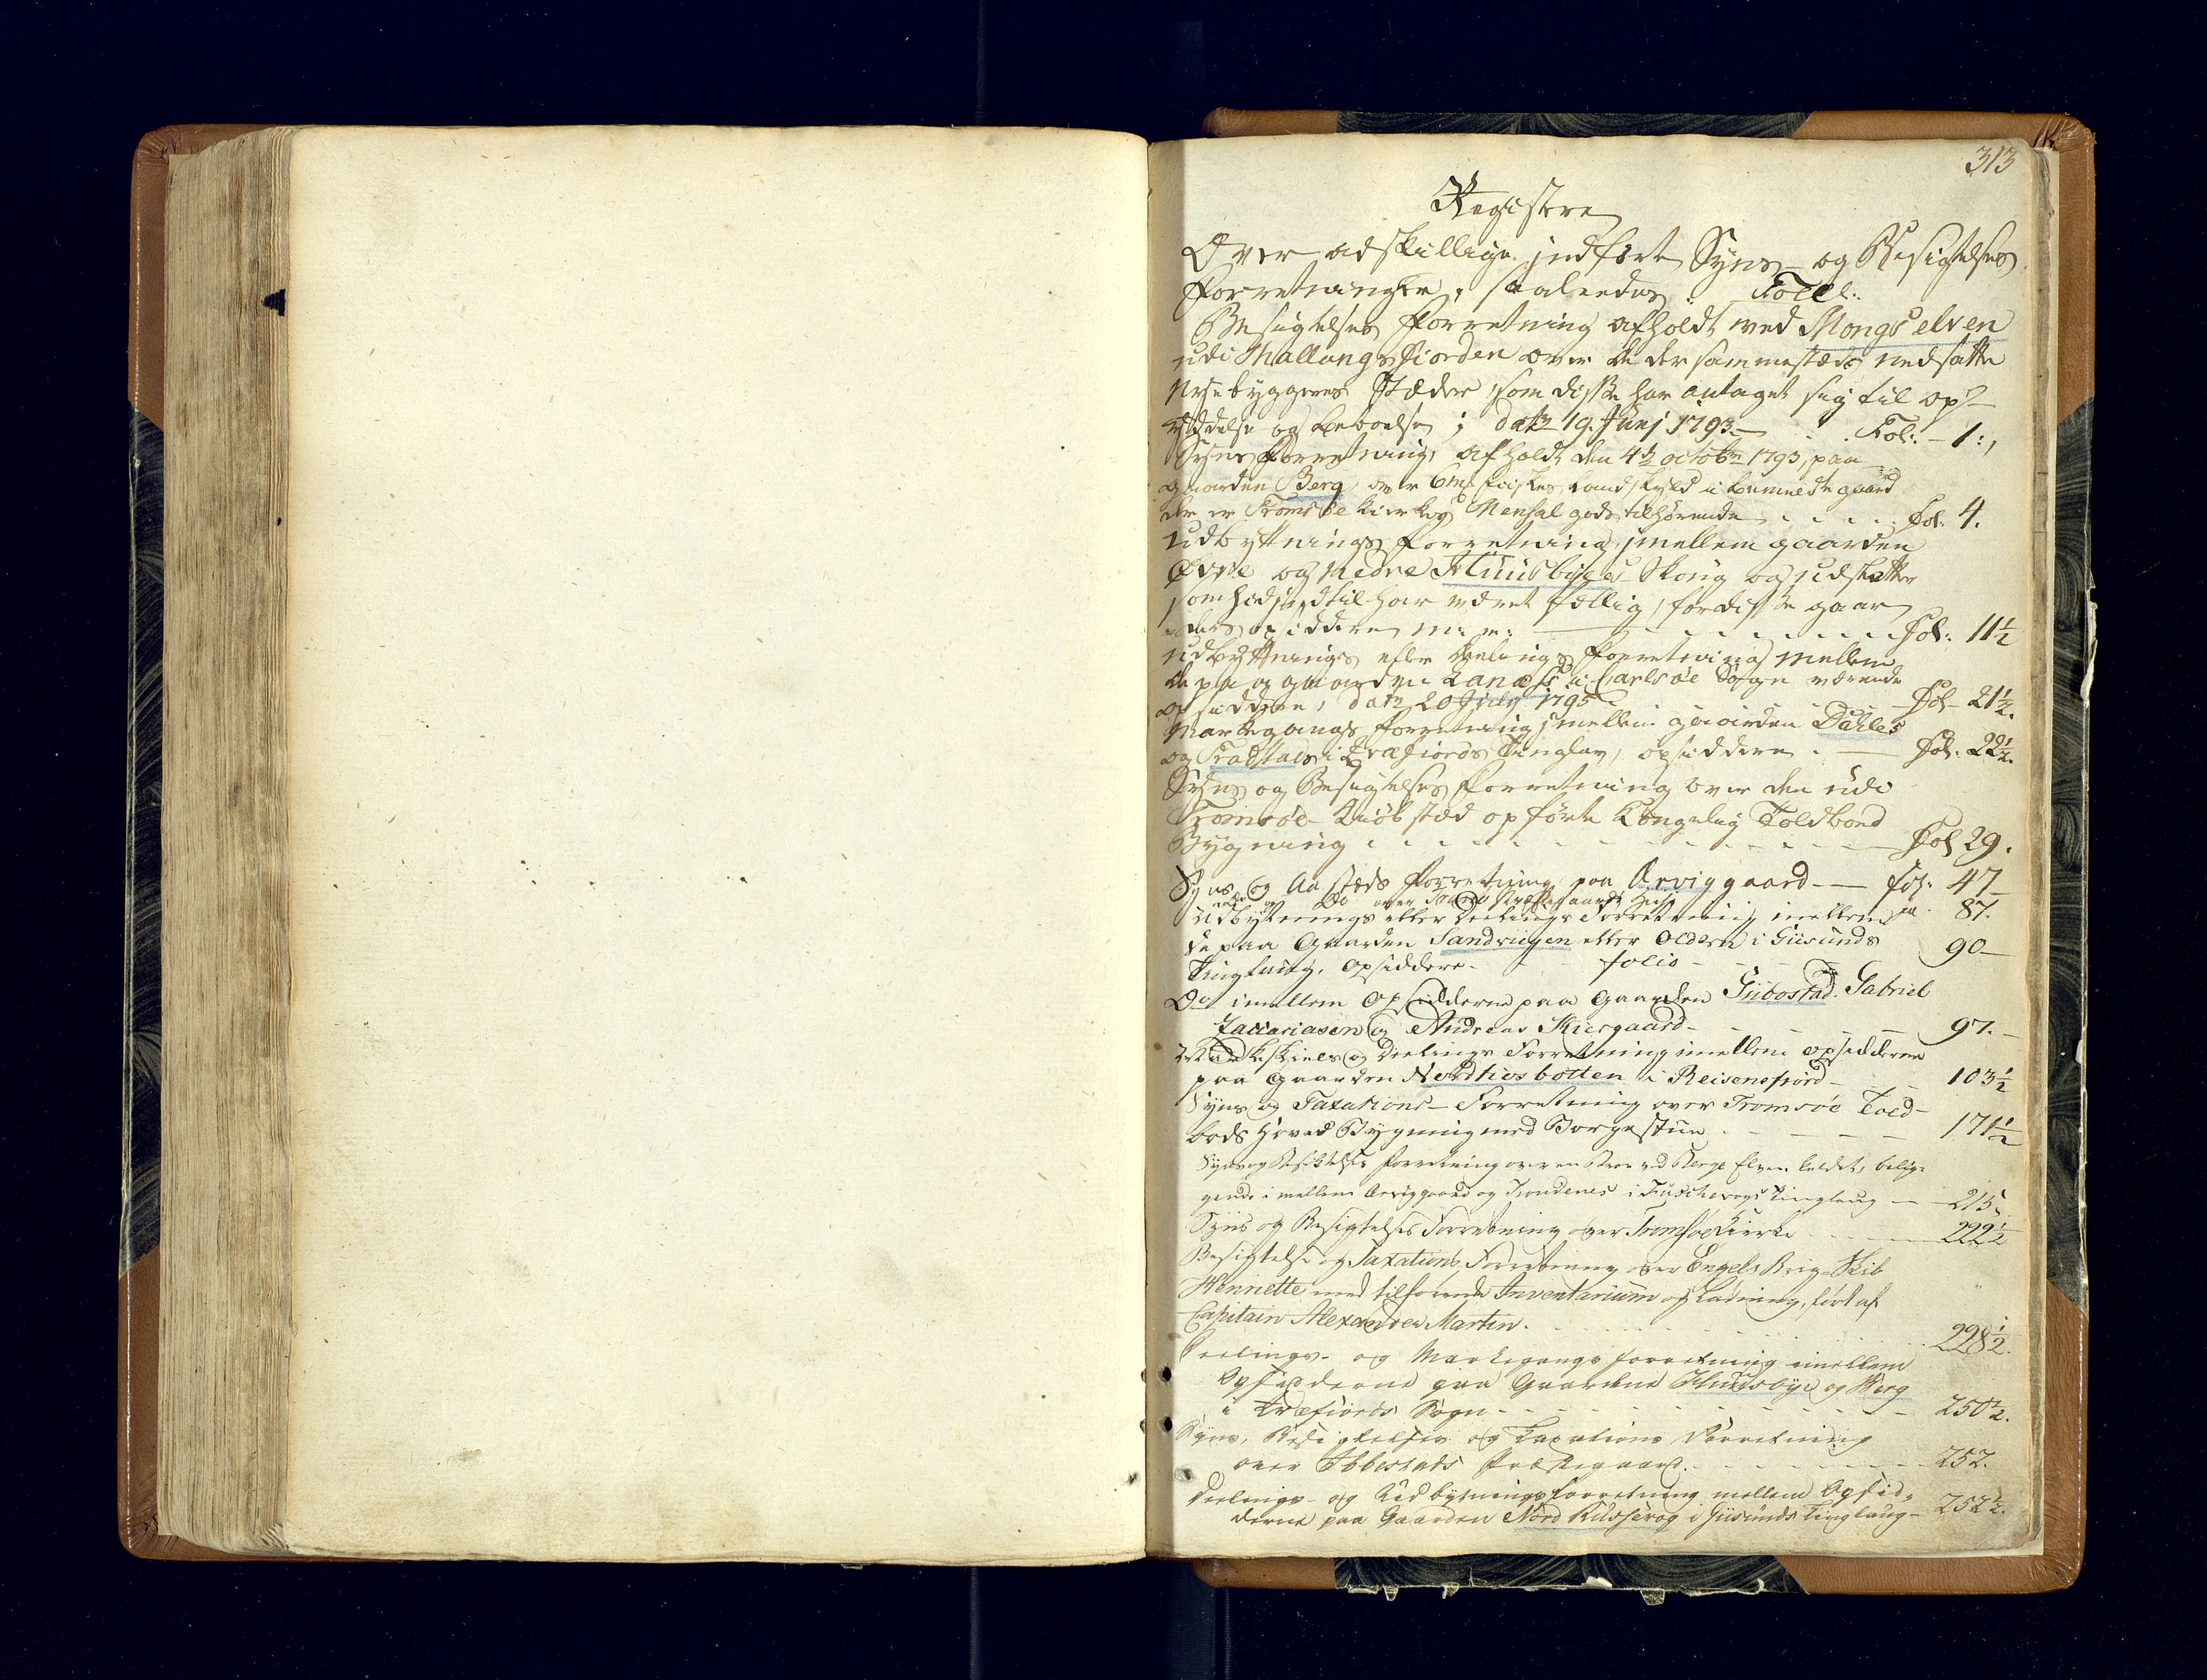 313
Registere
Over adskillige indførte Syns- og Besigtelses
Forretninger, saaledes: Foll:
Besigtelses Forretning afholdt ved Mongs elven
udi Mallangsfiorden over de der sammestæds nedsatte
Nyebyggeres Stæder, som disse har antaget sig til op-
ryddelse og beboelse, dat: 19. Junj 1793. Fol: 1:
Syns Forretning, afholdt den 4de octobr 1793, paa
gaarden Berg, over Fiskes Landskyld i bemeldte gaard
der er Tromsøe Kirkes Mensal gods tilhørende Fol: 4.
Udbyttnings Forretning imellem gaarden
Øvre og Nedre Huusbyes Skoug og udslætter
som hidindtil har været fællig, for disse gaar
ders opsiddere m: m: Fol: 11½
Udbyttnings eller Delings Forretning mellem
de paa gaarden Lanæss i Carlsøe Sogn værende
opsiddere, dat: 20 July 1795 Fol 21½.
Markegangs Forretning imellem gaarden Dahle
og i Qvæfiords Tinglav, opsiddere. Fol. 22½.
Syns og Besigtelses Forretning over den udi
Tromsøe Kiøbstæd opførte Kongelig Toldboed
Bygning Fol 29.
Syns og Aastæds Forretning paa Qrviggaard fol: 47
Do over 87.
Udbytnings eller Deelings Forretning imellem
de paa Gaarden Sandviigen eller Olderen i Giisunds 90
Tinglaug, Opsiddere. folio
Do imellem Opsidderne paa Gaarden Giibostad. Gabriel
Zacariasen og Andreas Kiergaard 97.
Markeskiels og Deelings Forretning imellem opsidderne
paa Gaarden Nordkiosbotten i Reisensfiord 103½
Syns og Taxations Forretning over Tromsøe Told-
bods Hoved Bygning med Borgestue 171½
Syns og Besigtelses Forretning over en Øre ved Berge Elven kaldet, belig-
gende imellem Qrviggaard og Trondenes i Tinglaug 215.
Syns og Besigtelses Forretning over Tromsøe Kierke 222½
Besigtelse og Taxations Forretning over Engelsk Brig-Skib
Henriette med tilhørende Inventarium og Ladning, ført af
Capitain Alexander Martin. 228½.
Deelings- og Markegangs forretning imellem
Opsidderne paa Gaardene Huusbye og Berg
i Qvæfiords Sogn 250½.
Syns, Besigtelses og Taxations Forretning
over Ibbestads Præstegaard. 252.
Deelings- og Udbytnings Forretning mellem Opsid-
derne paa Gaarden Nord Russevog i Giisunds Tinglaug 252½.